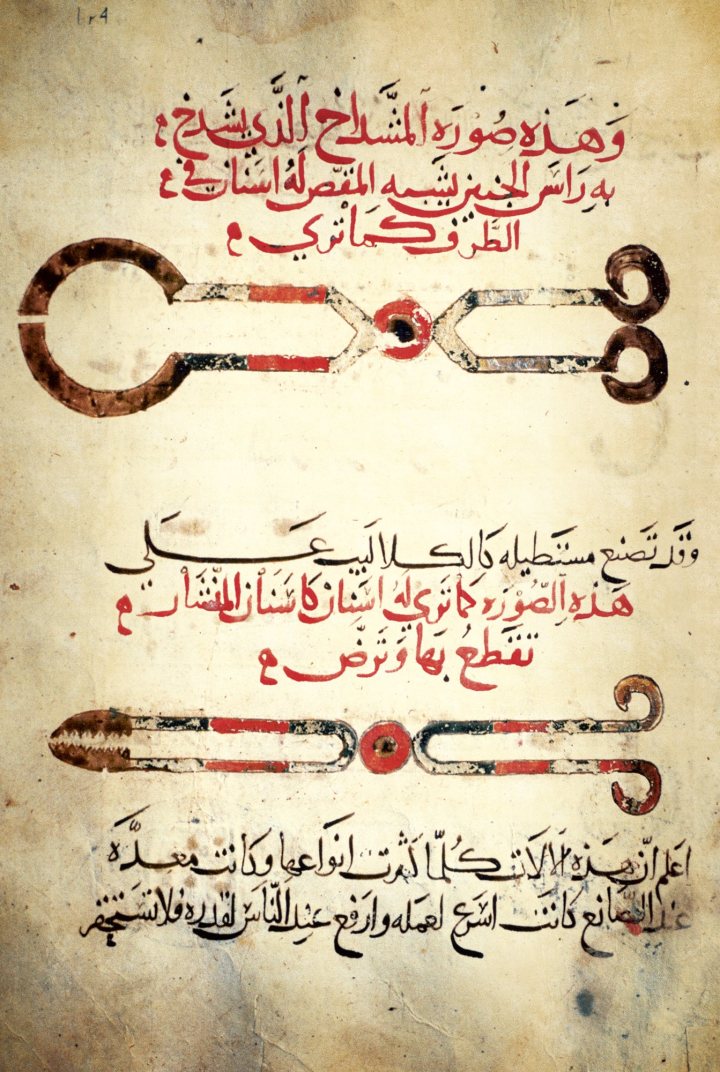 ١٢٤
وَهَذِه صُوْرَه اَلمشَّداخ اَلَّذِي يشَدخ
بهِ رَاسَ الجَنين يشَبه المقَصّ لَهُ اسَنان في
الطَّرَف كمَا تَري
وَقَد تَصَنع مستَطيله كَالكلاليب عَلَي
هَذه الصُّوْرَه كَمَا تَري لهُ اسَنان كاَسَنان المنْشَار
تقَطعُ بهَا وَتَرضّ
اعَلم انّ هَذِه الالاَت كُلّمَا كَثرت انَواعهَا وَكاَنت معدَّه
عند الصَّانع كاَنت اسَرع لعمَله وَارَفع عند النَّاسَ لقدَره فلا تسَتحقر